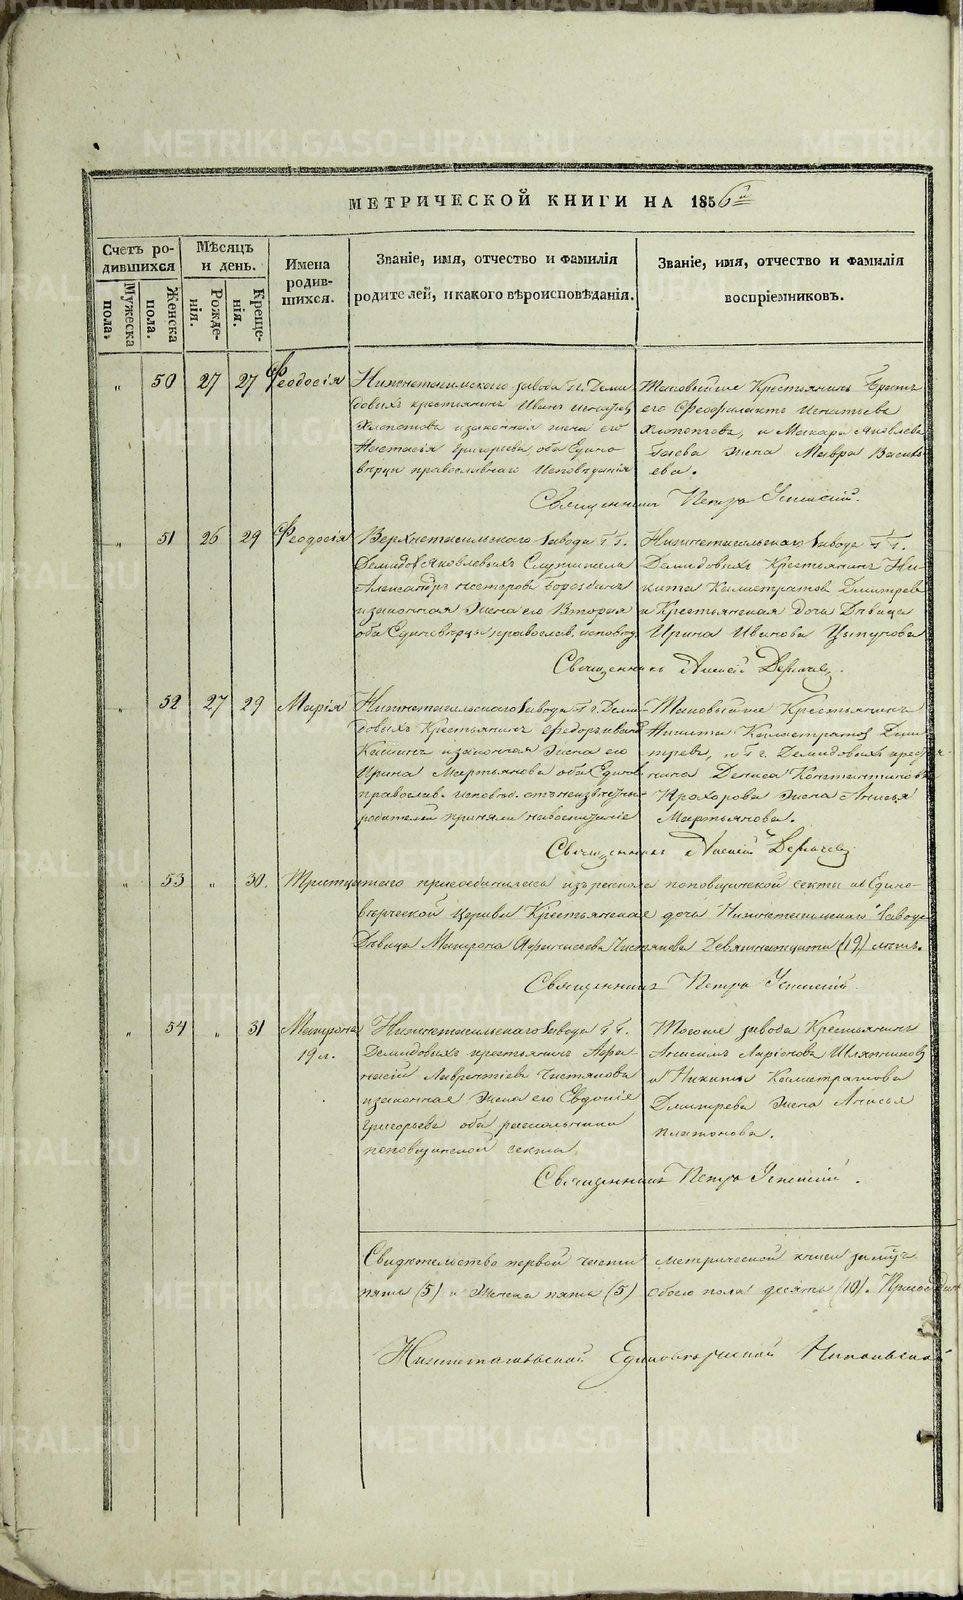 METRIKI.GASO-URAL.RU
МЕТРИЧЕСКОЙ КНИГИ НА 1856й
Счетъ ро-
дившихся
Мѣсяцъ
и день.
Имена
родив-
шихся.
Званіе, имя, отчество и фамилія
родителей, и какого вѣроисповѣданія.
Званіе, имя, отчество и фамилія
воспріемниковъ.
Мужеска
пола.
Женска
пола.
Рожде-
нія.
Креще-
нія.
" 50 27 27 Феодосія
Нижнетагильскаго завода Гг. Деми
довыхъ крестьянинъ Иванъ Игнатьевъ
Хлопотовъ и законная жена его
Настасія Григорьева, оба Едино
вѣрцы православнаго исповѣданія
Таковый же Крестьянинъ братъ
его Феофилактъ Игнатьевъ
Хлопотовъ, и Макара Яковлева
жена Мавра Василь
ева.
Священникъ Петръ
" 51 26 29 Феодосія
Верхнетагильскаго завода Гг.
Яковлевыхъ Служителя
Александръ Нестеровъ Бороздинъ
и законная жена его Вторая
оба Единовѣрцы, православ. исповѣд.
Нижнетагильскаго завода Гг.
Демидовыхъ Крестьянинъ Ни-
кита Калистратовъ Дмитревъ
и Крестьянская дочь Дѣвица
Ирина Иванова Цыпунова
Священникъ
" 52 27 29 Марія
Нижнетагильскаго завода Гг. Деми-
довыхъ Крестьянинъ Федоръ Ивановъ
и законная жена его
Ирина Мартьянова оба Единов.
православ. исповѣд. отъ неизвѣстныхъ
родителей приняли на воспитаніе
Таковый же Крестьянинъ
Никита Калистратовъ Дми
тревъ, и Гг. Демидовыхъ крестья-
нина Дениса Константинова
Прохорова жена Анисья
Мартьянова.
Священникъ
" 53 " 30. Тритцатаго присоединилась изъ раскола поповщинской секты къ Едино-
вѣрческой церкви Крестьянская дочь Нижнетагильскаго завода
Дѣвица Матрона Афанасьева Чистякова Девятнатцати (19) лѣтъ.
Священникъ Петръ
" 54 " 31 Матрона
19 л.
Нижнетагильскаго завода Гг.
Демидовыхъ крестьянинъ Афа
насій Лаврентіевъ Чистяковъ
и законная жена его Евдокія
Григорьева оба раскольники
поповщинской секты
Тогоже завода Крестьянинъ
Анисимъ Ларіоновъ
и Никиты Калистратова
Дмитрева жена Анисья
Платонова.
Священникъ Петръ
Свидѣтельство первой части метрической книги за муж.
пять (5) и Женска пять (5) обоего пола десять (10).
Нижнетагильской Единовѣрческой Никольской